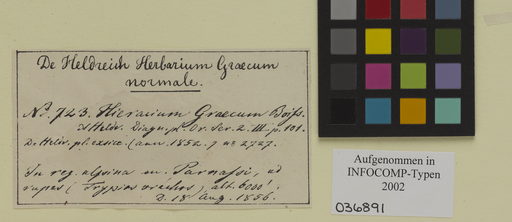 De Heldreich Herbarium Graecum
normale.
No. 723. Hieracium Graecum Boiss.
et Heldr. Diagn. pl. Or. Ser. 2. III. p. 101.
De Heldr. pl. exsicc. (ann. 1852.) no 2727.
In reg. alpina m. Parnassi, ad
rupes ( ), alt. 6000'.
D. 18 Aug. 1856.
Aufgenommen in
INFOCOMP-Typen
2002
036891